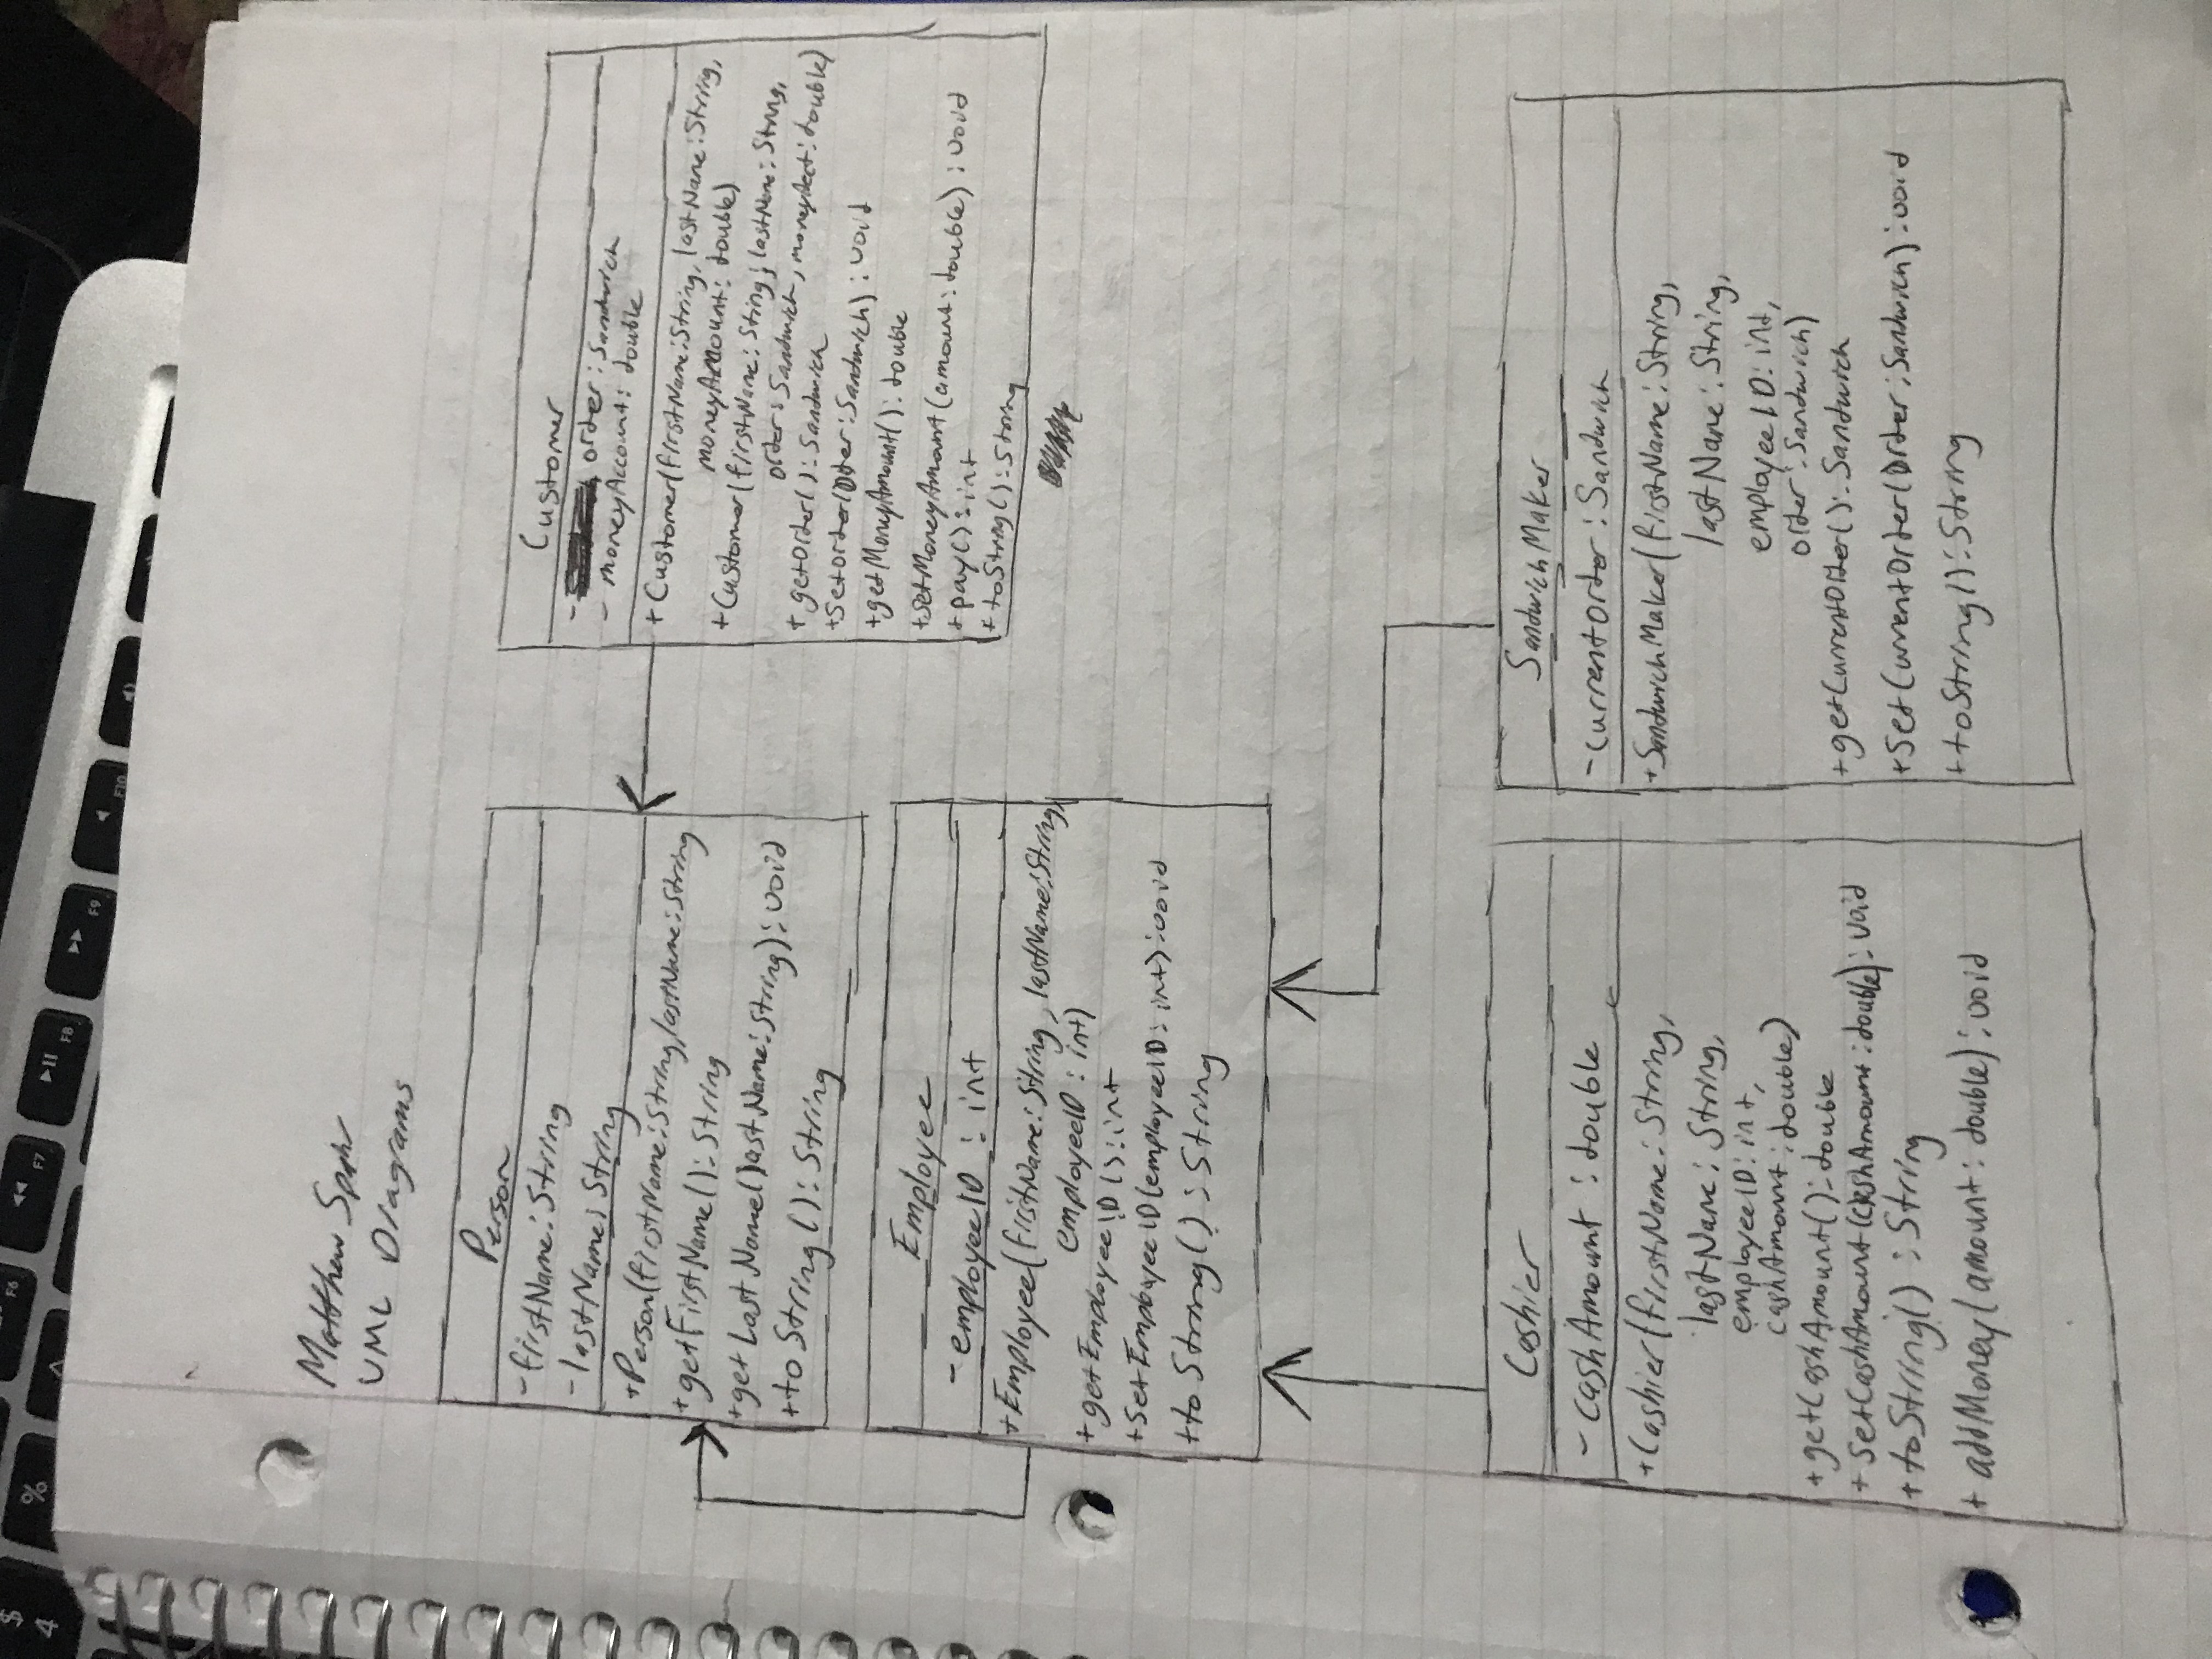 $
4
%
F6
F7
F8
F9
F10
Matthew Spahr
UML Diagrams
Person
-firstName:String
-lastName:String
+Person(firstName:String,lastName:String
+getFirstName():String
+getLastName(lastName:String):void
+toString():String
Customer
- order:Sandwich
- moneyAccount:double
+Customer(firstName:String, lastName:String,
moneyAmount:double)
+Customer(firstName:String, lastName:String,
order:Sandwich, moneyAcct:double)
+getOrder():Sandwich
+setOrder(Order:Sandwich):void
+getMoneyAmount():double
+setMoneyAmount(amount:double):void
+pay():int
+toString():String
Employee
-employeeID : int
+Employee(firstName:String, lastName:String,
employeeID : int)
+getEmployeeID():int
+SetEmployeeID(employeeID:int):void
+toString():String
Cashier
-cashAmount : double
+Cashier(firstName:String,
lastName:String,
employeeID:int,
cashAmount:double)
+getCashAmount():double
+setCashAmount(cashAmount:double):void
+toString():String
+addMoney(amount:double):void
SandwichMaker
-currentOrder:Sandwich
+SandwichMaker(firstName:String,
lastName:String,
employeeID:int,
order:Sandwich)
+getCurrentOrder():Sandwich
+SetCurrentOrder(Order:Sandwich):void
+toString():String